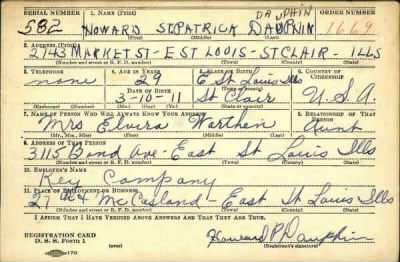 SERIAL NUMBER 1. NAME (Print) DAUPHIN ORDER NUMBER
582 HOWARD ST.PATRICK DAUPHIN 1669
2. ADDRESS (Print)
2743 MARKET ST - E ST LOUIS - ST CLAIR - ILLS
(Number and street or R. F. D. number) (Town) (County) (State)
3. TELEPHONE 4. AGE IN YEARS 5. PLACE OF BIRTH 6. COUNTRY OF CITIZENSHIP
none 29 E St Louis Ills
DATE OF BIRTH (Town or county)
3-10-11 St Clair U.S.A.
(Exchange) (Number) (Mo.) (Day) (Yr.) (State or country)
7. NAME OF PERSON WHO WILL ALWAYS KNOW YOUR ADDRESS 8. RELATIONSHIP OF THAT PERSON
Mrs Elvera Warthen Aunt
(Mr., Mrs., Miss) (First) (Middle) (Last)
9. ADDRESS OF THAT PERSON
3115 Bond Ave - East St Louis Ills
(Number and street or R. F. D. number) (Town) (County) (State)
10. EMPLOYER'S NAME
Key Company
11. PLACE OF EMPLOYMENT OR BUSINESS
27 th & McCasland - East St Louis Ills
(Number and street or R. F. D. number) (Town) (County) (State)
I AFFIRM THAT I HAVE VERIFIED ABOVE ANSWERS AND THAT THEY ARE TRUE.
REGISTRATION CARD
D. S. S. Form 1 (over) Howard P Dauphin
(Registrant's signature)